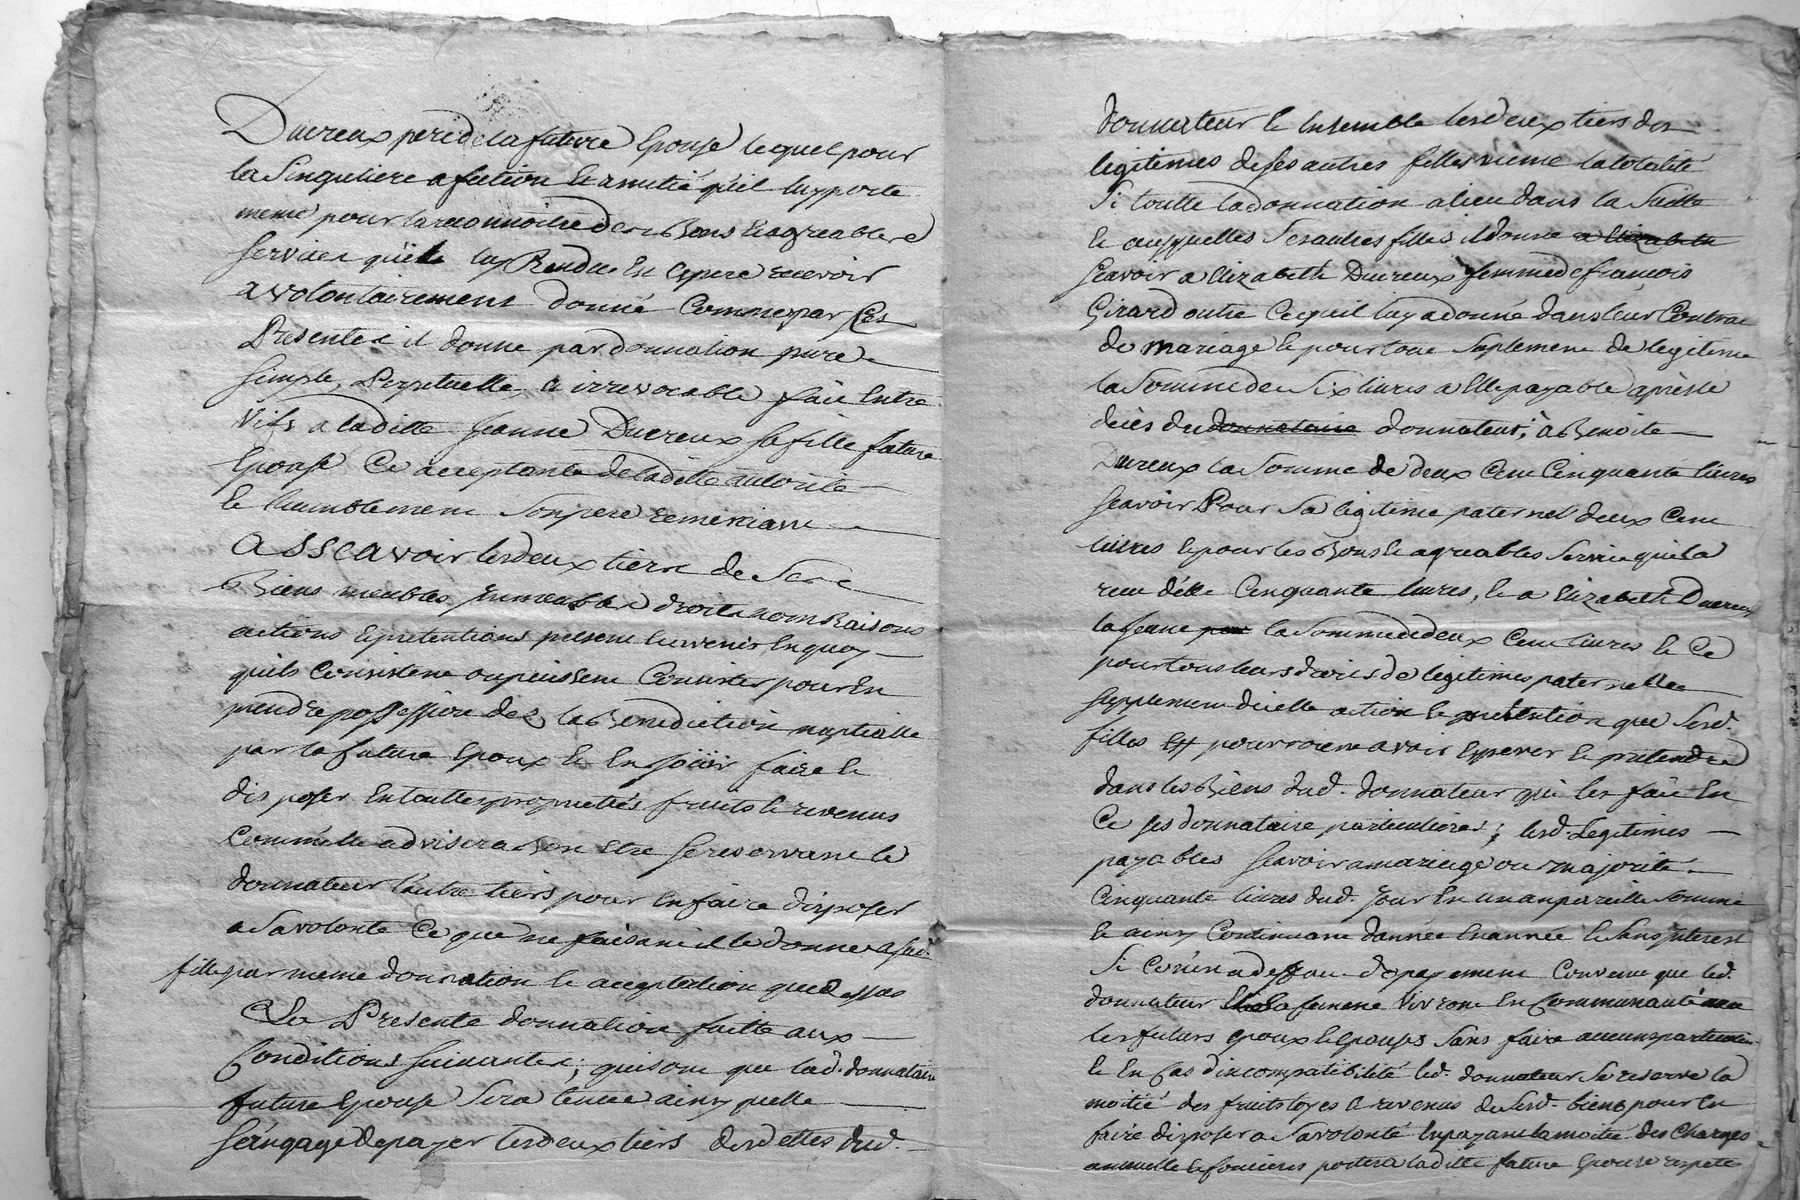 Ducreux pere de la future Epouse lequel pour
la Singuliere afection Et amitié qu'il luy porte
meme pour la reconnoitre des Bons Et agreables
services quelle luy a Rendue En Espere recevoir
a volontairement donné Comme par Ces
Presentes il donne par donnation pure
simple, Perpetuelle, a irrevocable faite Entre
Vifs a laditte Jeanne Ducreux sa fille future
Epouse Ce acceptante de laditte autorité
Et humblement Son pere remerciant
Asscavoir lesdeux tiers de Ses
Biens meubles Immeubles droits noms Raisons
actions Et pretentions present Et avenir En quoy
quils Consistent ou puissent Consister pour En
prendre possession dez la Benediction nuptialle
par la future Epoux Et En joüir faire Et
disposer En touttes proprietés fruits Et revenus
Comme Elle advisera Bon Etre se reservant le
donnateur l'autre tiers pour En faire disposer
a Sa volonté Ce que ne faisant il le donne a sad.
fille par meme donnation Et acceptation que dessus
La Presente donnation faitte aux
Conditions suivantes; qui sont que lad. donnataire
future Epouse Sera tenue ainsy quelle
s'engage de payer lesdeux tiers des dettes dud.
donnateur Et Ensemble lesdeux tiers des
legitimes de ses autres filles meme la totalité
Si toutte la donnation a lieu dans la Suitte
Et auxquelles Ses autres filles il donne a Elizabeth
Scavoir a Elizabeth Ducreux femme de françois
Girard outre Ce quil luy a donné dans leur Contrac
de mariage Et pour tout Suplement de legitime
la Somme de Six livres a Elle payable après le
decès du donnataire donnateur; à Benoite
Ducreux la Somme de deux Cent Cinquante livres
Scavoir Pour Sa legitime paternel deux Cent
livres Et pour les Bons Et agreables Service quil a
reçu d'elle Cinquante livres, Et a Elizabeth Ducreux
la jeune la Somme de deux Cent livres Et Ce
pour tous leurs droits de legitimes paternelle
supplement dicelle action Et pretention que Sesd.
filles pourroient avoir Esperer Et pretendre
dans les Biens dud. donnateur qui les fait En
Ce ses donnataire particulieres; lesd. Legitimes
payables scavoir a mariage ou majorité
Cinquante livres dud. jour En un an pareille Somme
Et ainsy Continuant d'année En année Et Sans jnterest
Si Ce n'en a deffaut de payement Convenu que led.
donnateur Et Sa femme vivront En Communauté
les futurs Epoux Et Epouse Sans faire aucuns partement
Et En Cas d'incompatibilité led. donnateur Se reserve la
moitié des fruits loyes Et revenus de Sesd. biens pour En
faire disposer a Sa volonté En payant la moitié des Charges
annuelle Et foncieres portera laditte future Epouse respets